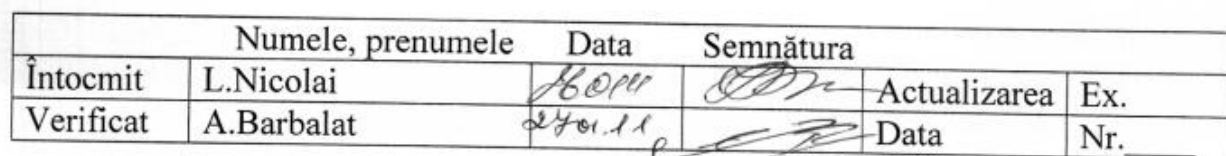 Numele, prenumele Data Semnătura
Întocmit L.Nicolai Actualizarea Ex.
Verificat A.Barbalat 27.01.11 Data Nr.____